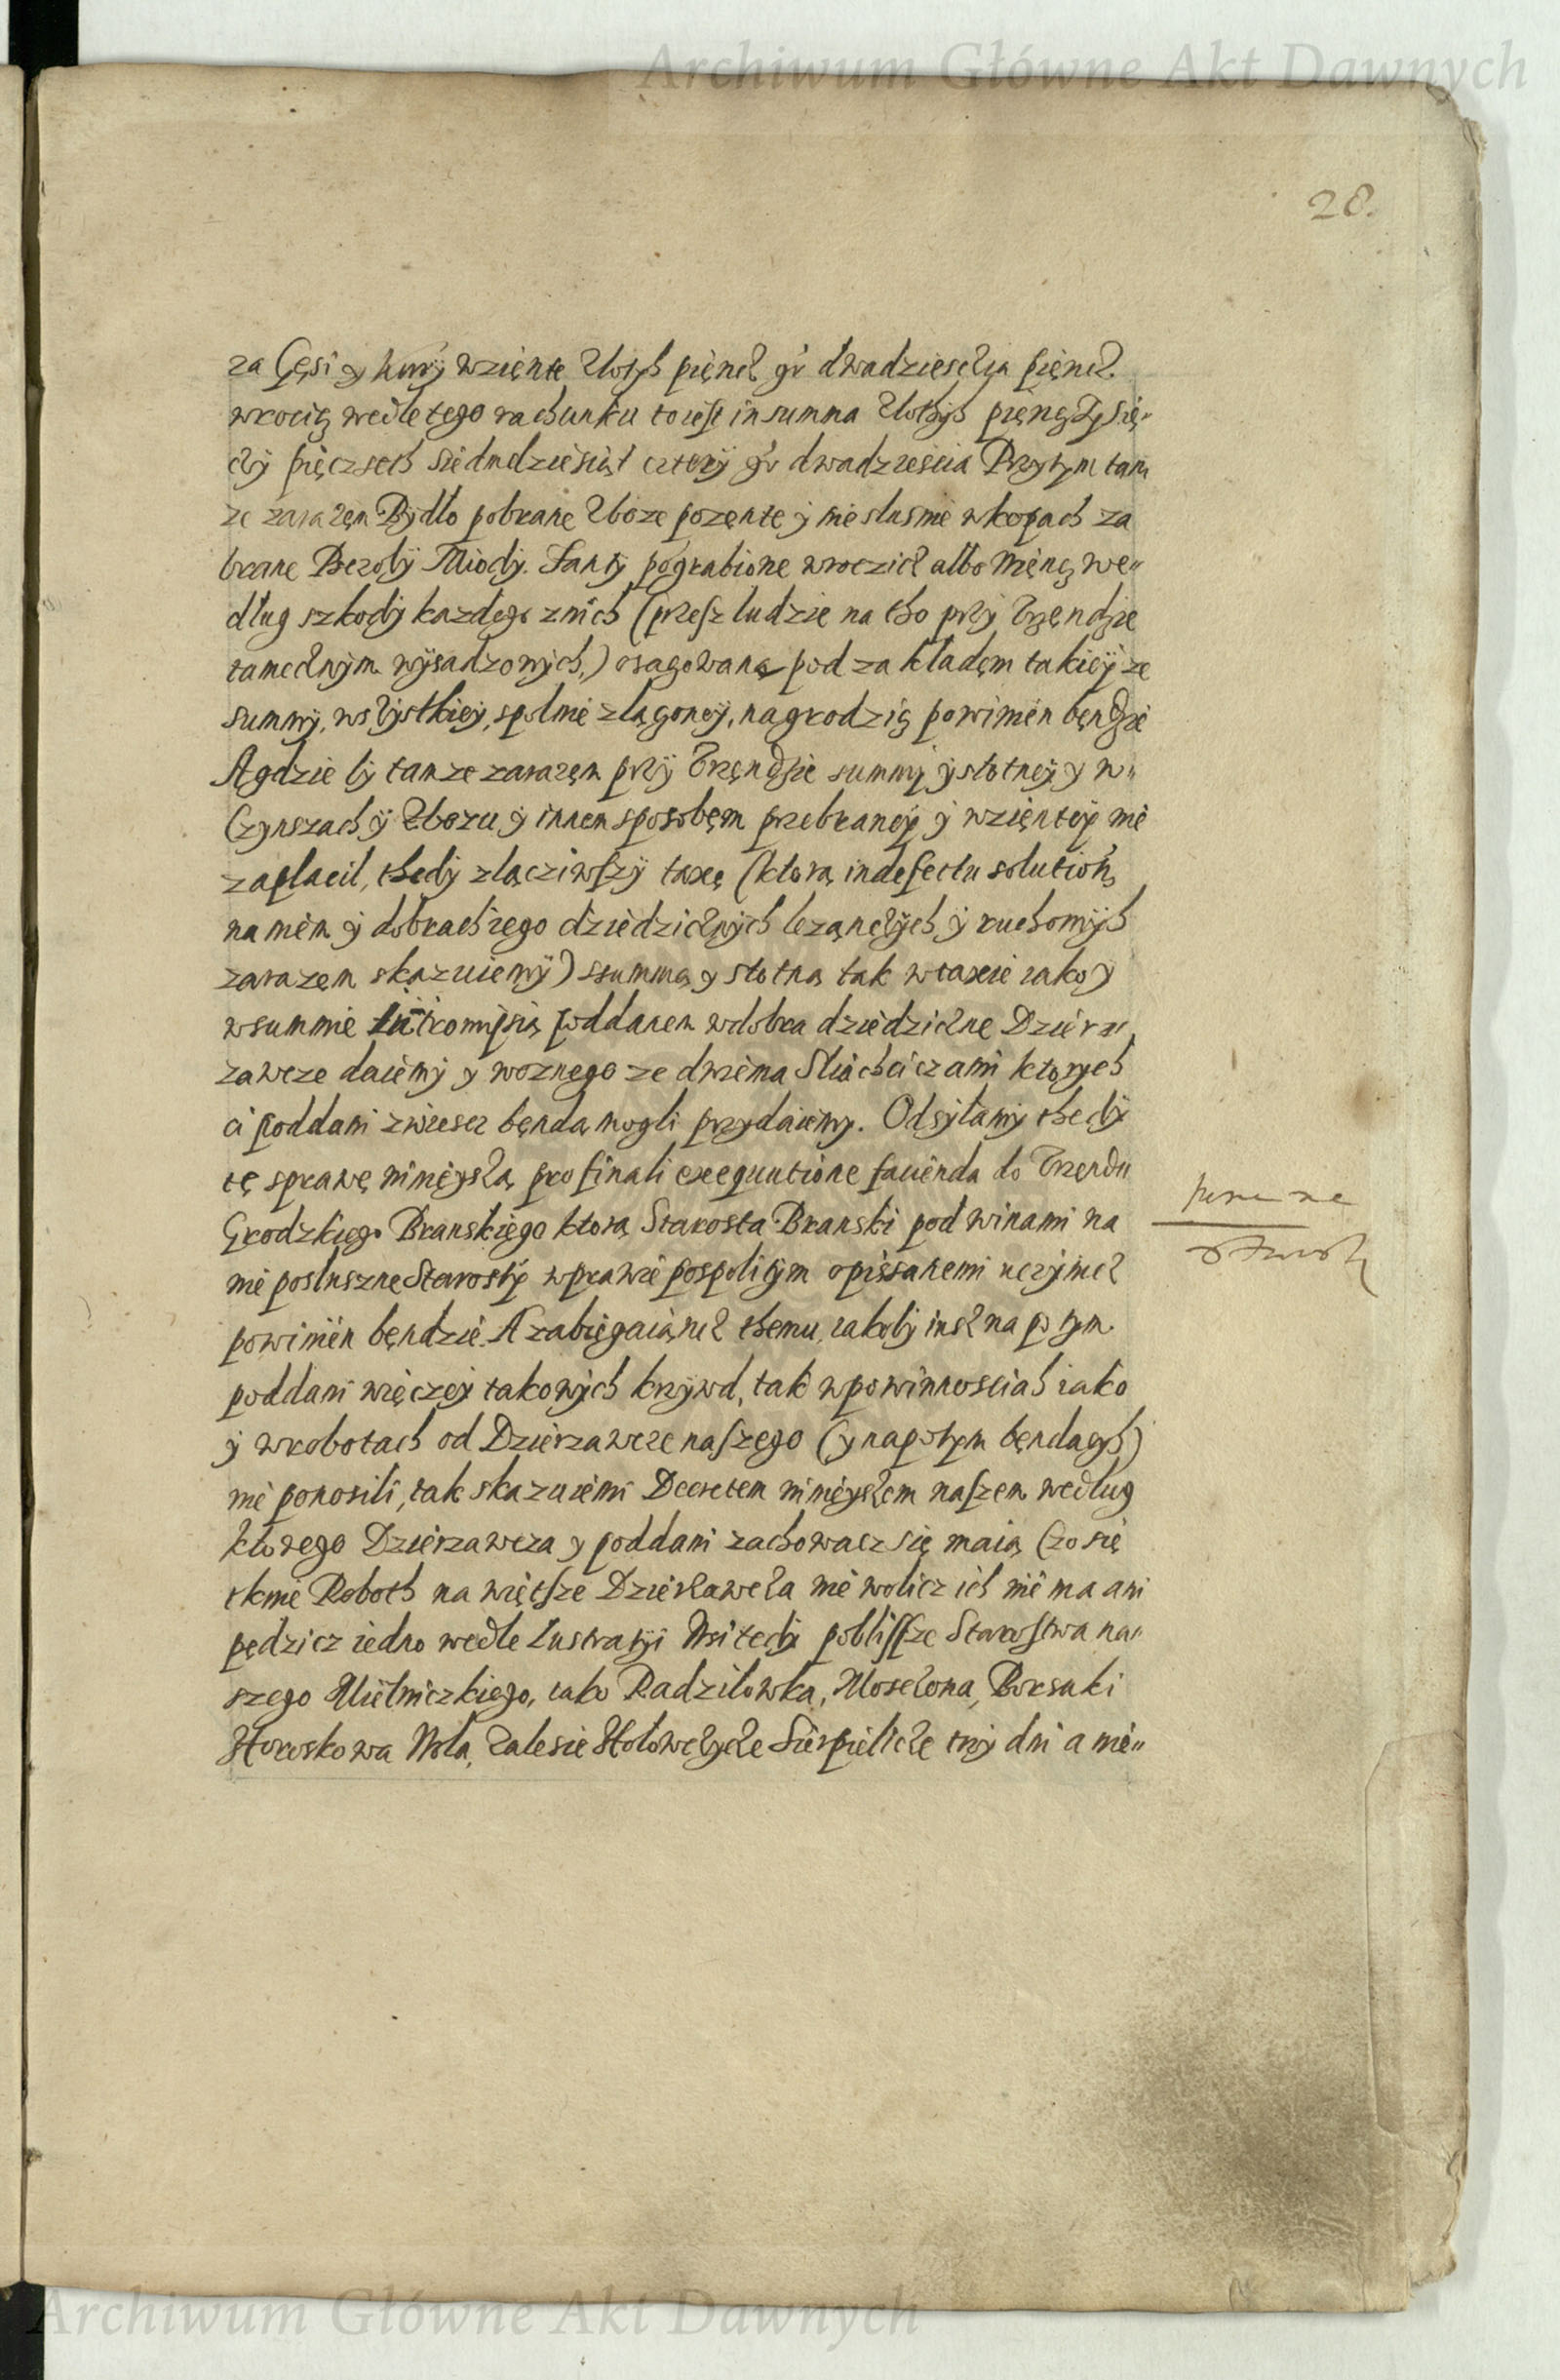 Archiwum Główne Akt Dawnych
28.
za Gęsi y kury wzięnte złotych pięncz gr dwadziesczia pięncz.
wrocię wedle tego rachunku to iest in summa złotych pięnc Tysię„
czy pięczseth siedmdziesiąt cztery gr dwadziescia Przytym tam
ze zarazęm Bydło pobrane zboze pozęnte y niesłusnie w kopach za
brane Pczoły Miody. Fanty pograbione wroczicz albo mięnę we„
dług szkody kazdego z nich (przesz ludzie na tho przy Urzęndzie
tamecznym wysadzonych,) osacowaną pod zakładęm takieÿ ze
summy, wszystkiey, spolnie złączoney, nagrodzic powinięn będzie
A gdzie by tam ze zarazęm przy Urzęndzie summy ystotney y w„
Czynszach y Zbozu y innem sposobęm przebraney y wzięntey nie
zapłacil, thedy złącziwszy taxę (ktorą in defectu solutionis
na niem y dobrach iego dziedzicznych lezączych y ruchomych
zarazem skazuiemy) ssummą ystotną tak w taxie iako y
w summie poddanem w dobra dziedziczne Dzierz„
zawcze daiemy y woznego ze dwiema Sliachciczami ktorych
ci poddani zwiescz będą mogli przydaiemy. Odsyłamy thedy
tę sprawę ninieyszą pro finali exequutione facienda do Urzędu
Grodzkiego Branskiego ktorą Starosta Branski pod winami na
nie posłuszne Starosty w prawie pospolitym opissanemi uczynicz
powinien bendzie. A zabiegaiąncz themu, iakoby insz na potym
poddani więczey takowych krzywd, tak w powinnosciach iako
y w robotach od Dzierzawcze naszego (y na potym będacych)
nie ponosili, tak skazuiemi Decretem ninieyszem naszem według
ktorego Dzierzawcza y poddani zachowacz się maią Czo się
tknie Roboth na więtsze Dzierzawcza niewolicz ich nie ma ani
pędzicz iedno wedle Lustratyi Wsi tedy pobliszsze Starostwa na„
szego Mielniczkiego, iako Radzilowka, Moszczona, Borsuki
Horoskowa Wola, Zalesie Hołowczycze Sierpielicze trzy dni a nie„
Archiwum Główne Akt Dawnych